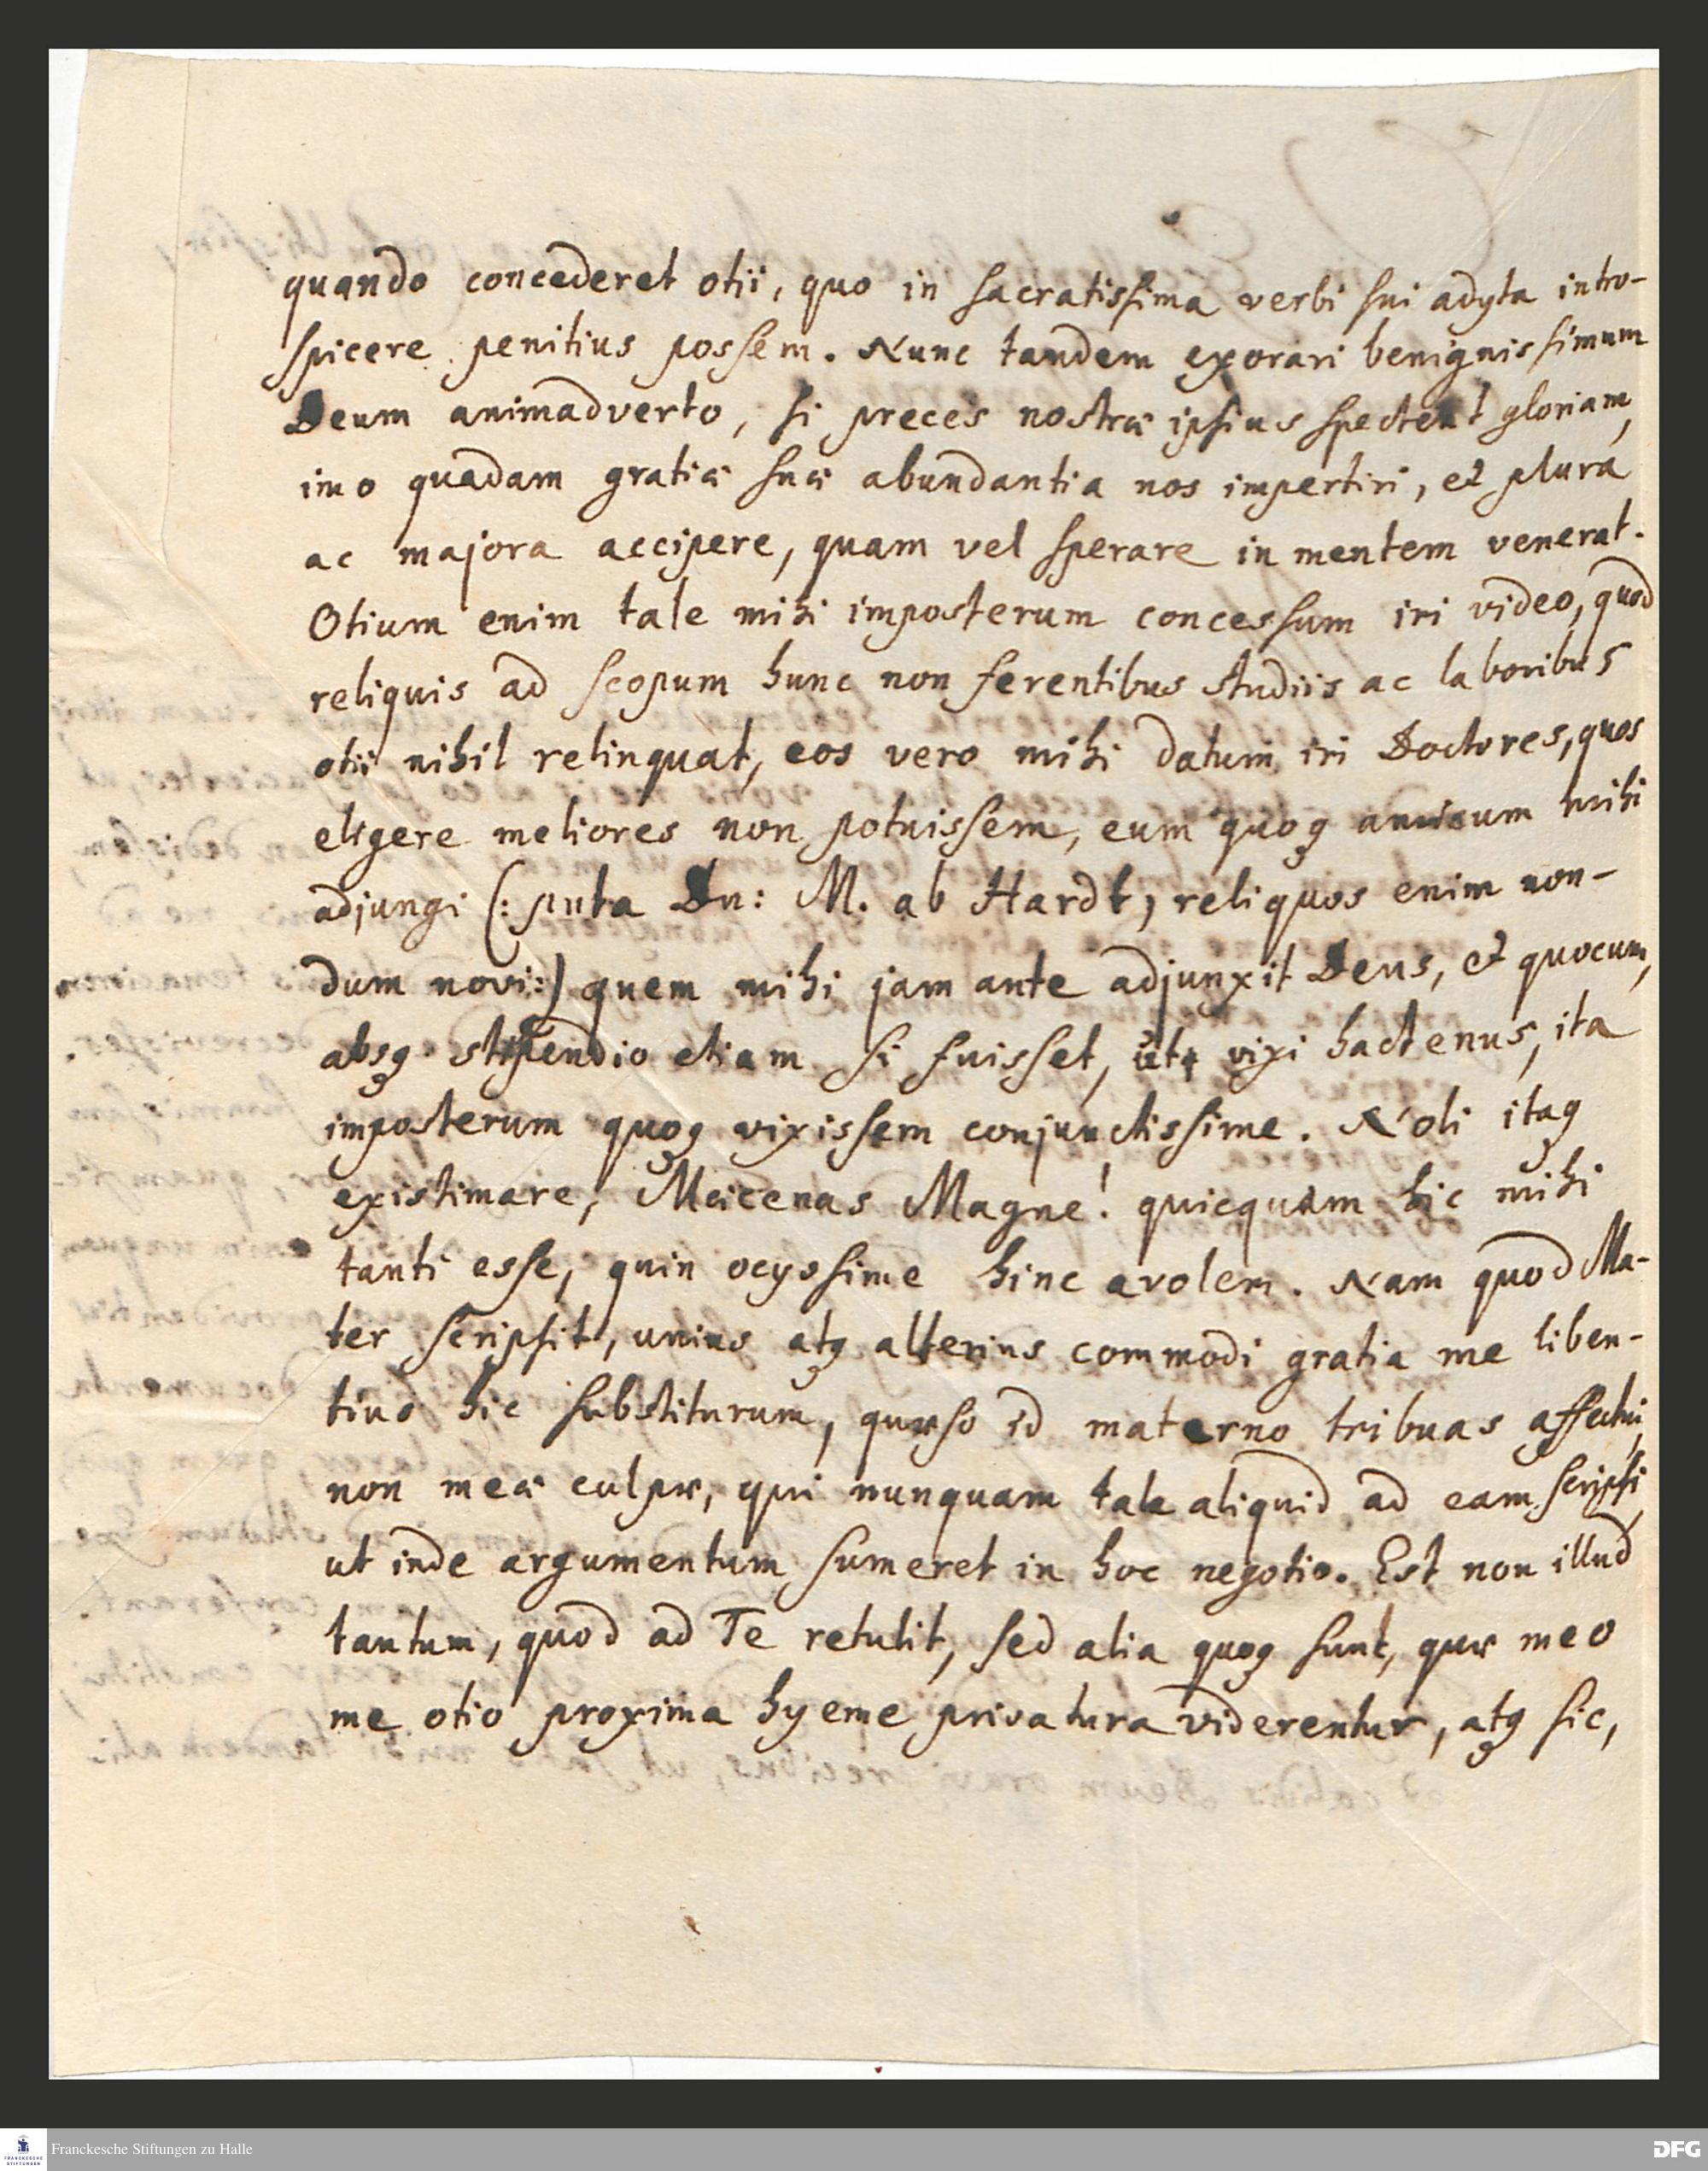 quando concederet otii, quo in sacratissima verbi sui adyta intro-
spicere penitius possem. Nunc tandem exorari benignissimum
Deum animadverto, si preces nostræ ipsius spectent gloriam,
imo quadam gratiæ suæ abundantia nos impertiri, et plura
ac majora accipere, quam vel sperare in mentem venerat.
Otium enim tale mihi imposterum concessum iri video, quod
reliquis ad scopum hunc non ferentibus studiis ac laboribus
otii nihil relinquat, eos vero mihi datum iri Doctores, quos
eligere meliores non potuissem, eum quoq amicum mihi
adjungi (: puta Dn: M. ab Hardt, reliquos enim non-
dum novi:) quem mihi jam ante adjunxit Deus, et quocum,
absq stipendio etiam si fuisset, uti vixi hactenus, ita
imposterum quoq vixissem conjunctissime. Noli itaq
existimare, Mæcenas Magne! quicquam hic mihi
tanti esse, quin ocyssime hinc avolem. Nam quod Ma-
ter scripsit, unius atq alterius commodi gratia me liben-
tius hic substiturum, quæso id materno tribuas affectui,
non meæ culpæ, qui nunquam tale aliquid ad eam scripsi,
ut inde argumentum sumeret in hoc negotio. Est non illud
tantum, quod ad Te retulit, sed alia quoq sunt, quæ meo
me otio proxima hyeme privatura viderentur, atq sic,
Franckesche Stiftungen zu Halle
FRANCKESCHE
STIFTUNGEN
DFG